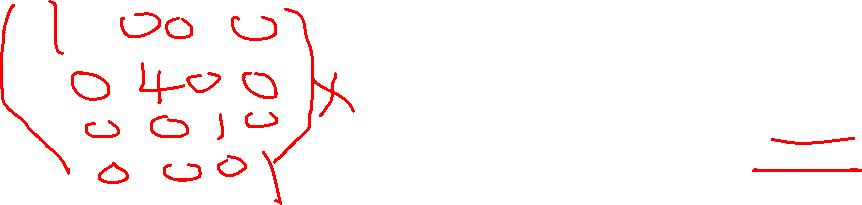 ( 1 0 0 0
0 4 0 0
0 0 1 0
0 0 0 1 ) x =